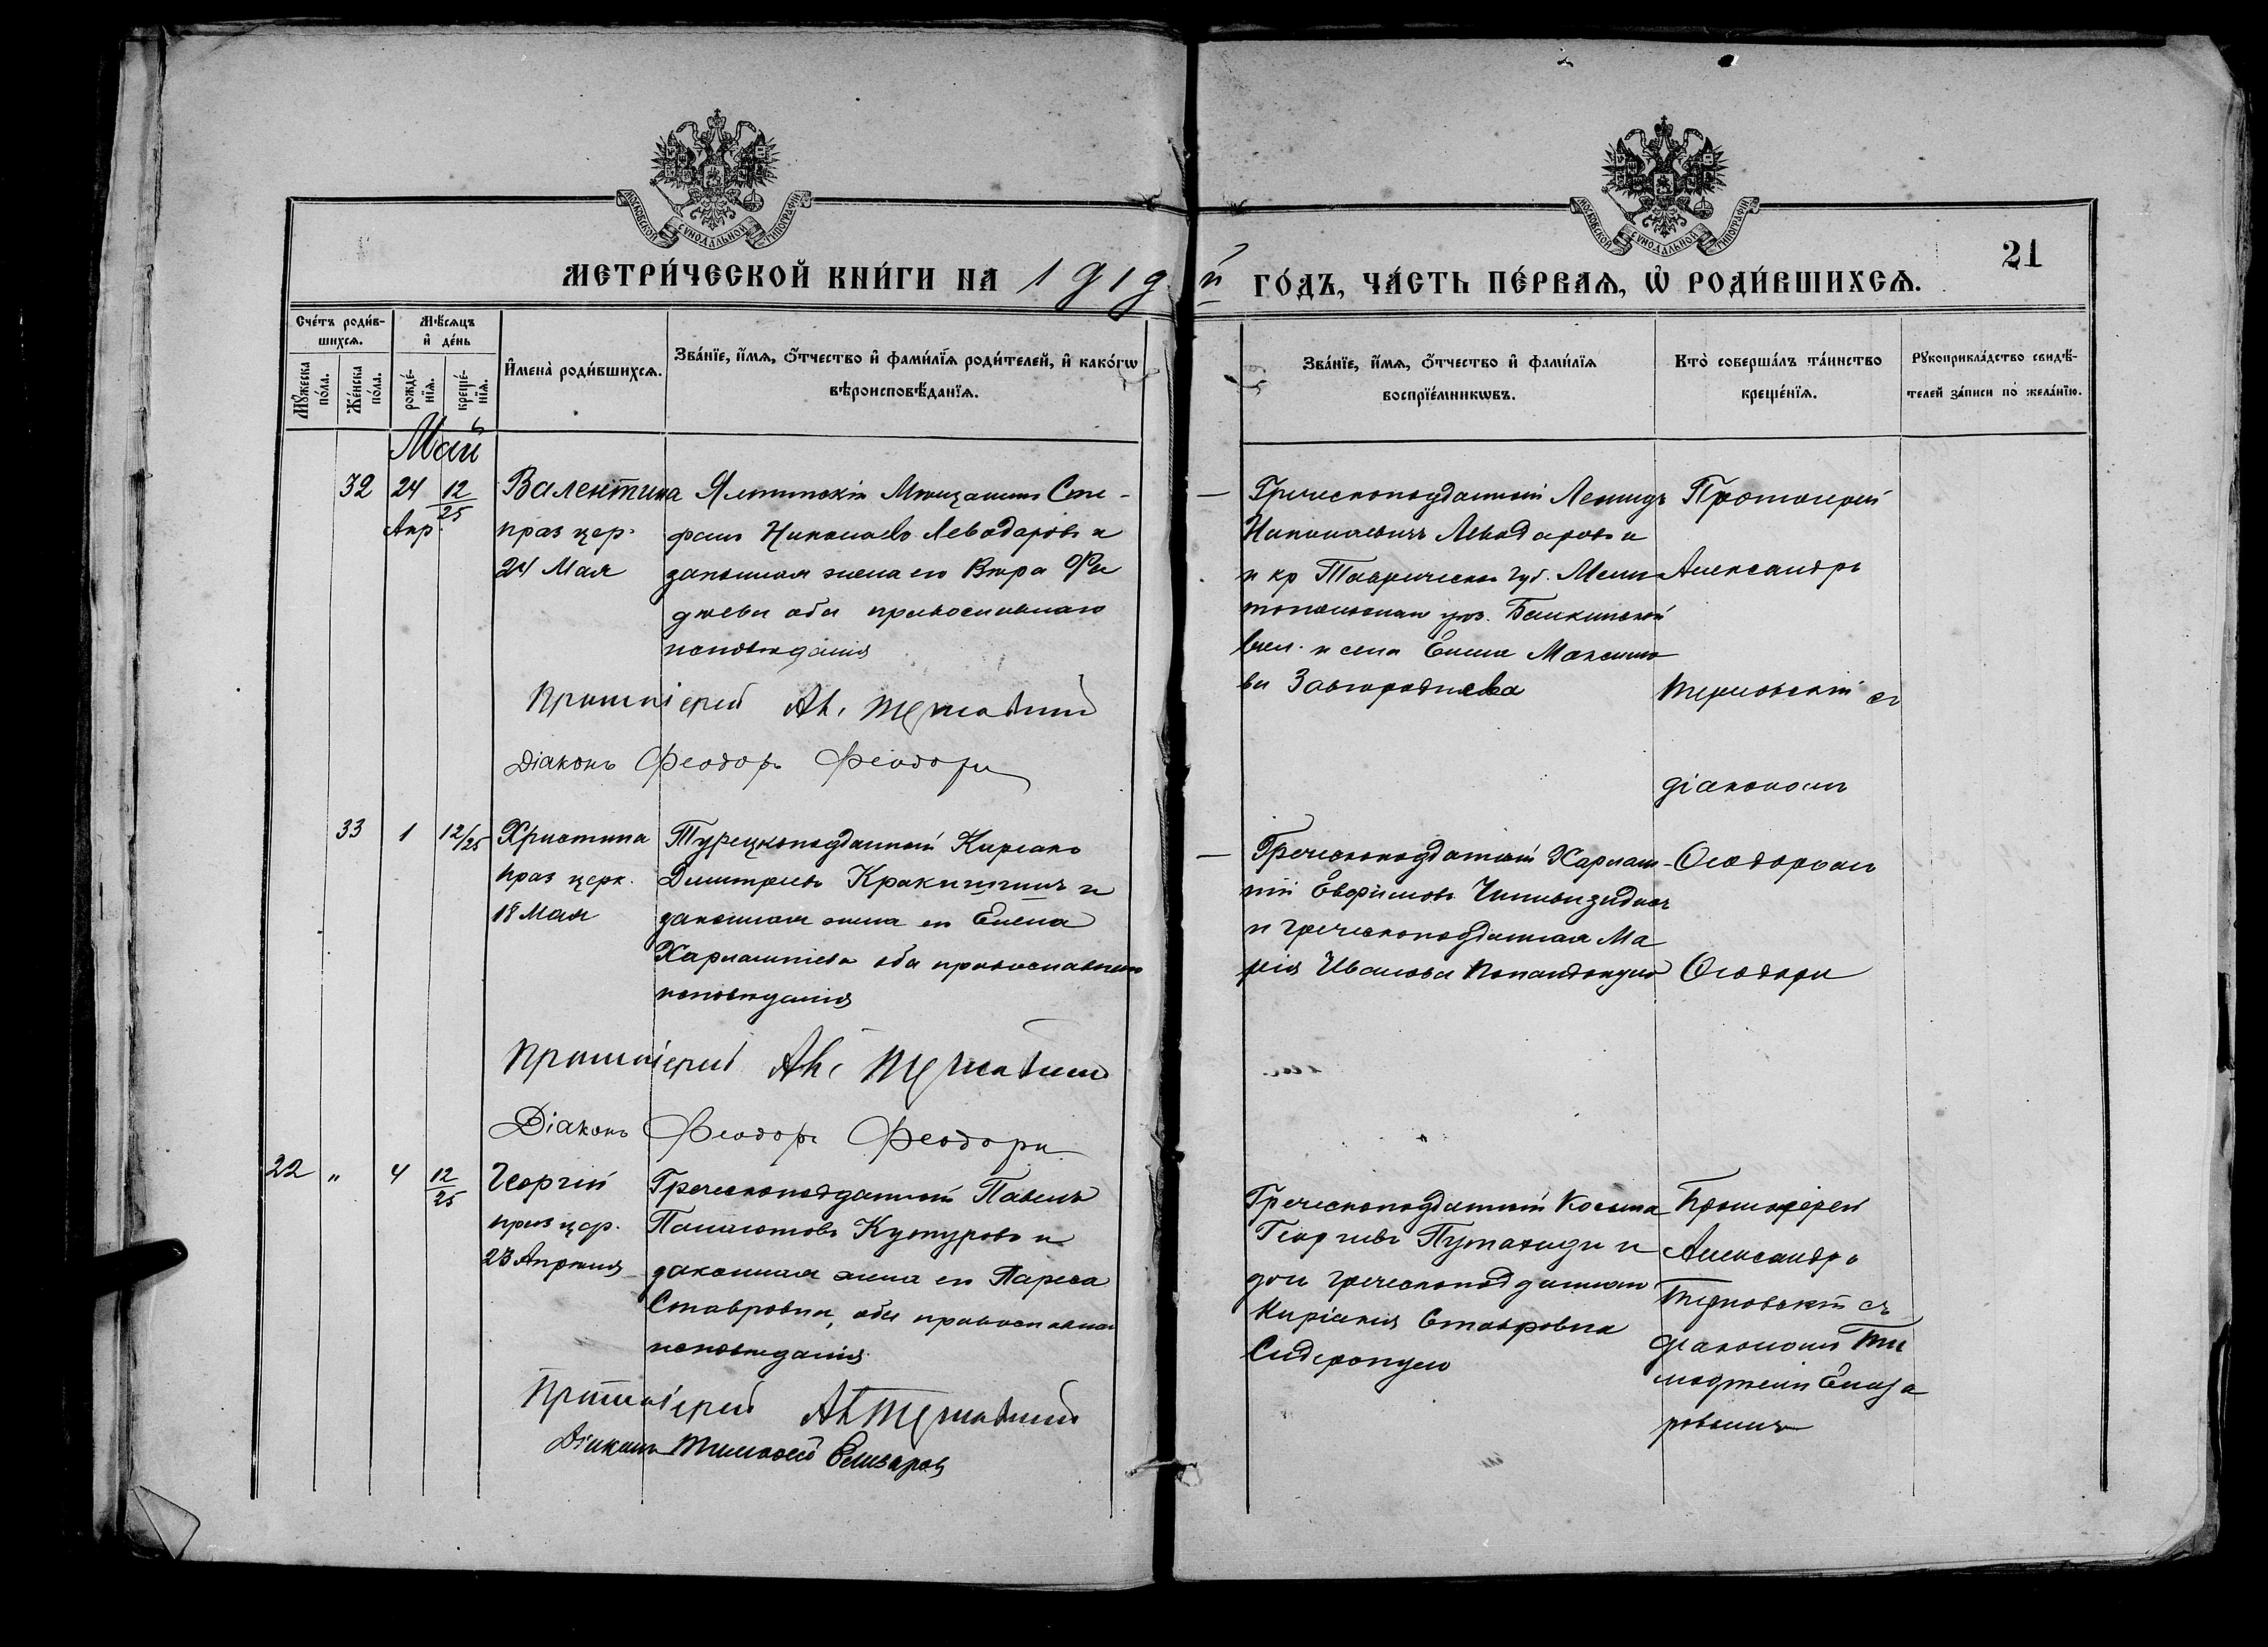 МОСКОВСКОЙ СѴНОДАЛЬНОЙ ТИПОГРАФІИ
МОСКОВСКОЙ СѴНОДАЛЬНОЙ ТИПОГРАФІИ
МЕТРИ́ЧЕСКОЙ КНИ́ГИ НА 1919 й ГО́ДЪ, ЧА́СТЬ ПЕ́РВАѦ, Ѡ҆ РОДИ́ВШИХСѦ.
21
Сче́тъ роди́в-
шихсѧ.
Мꙋ́жеска по́ла.
Же́нска по́ла.
Мѣ́сѧцъ
и҆ де́нь
рожде́-нїѧ.
креще́-нїѧ.
И҆мена̀ роди́вшихсѧ.
Зва́нїе, и҆́мѧ, ѻ҆́тчество и҆ фами́лїѧ роди́телей, и҆ како́гѡ
вѣроисповѣ́данїѧ.
Зва́нїе, и҆́мѧ, ѻ҆́тчество и҆ фами́лїѧ
воспрїе́мникѡвъ.
Кто̀ соверша́лъ та́инство
креще́нїѧ.
Рꙋкоприкла́дство свидѣ́-
телей за́писи по̀ жела́нїю.
Май
32 24 Апр. 12/25
Валентина
праз цер.
24 Мая
Ялтинскій Мѣщанинъ Сте-
фанъ Николаевъ Левадаровъ и
законная жена его Вѣра Фа
дѣева оба православнаго
исповѣданія
Греческоподданный Леонидъ
Николаевичъ Левадаровъ и
и кр Таврической губ. Мели
топольскаго уѣз. Балкинской
вол. и села Елена Максимо
ва Завгороднева
Протоіерей
Александръ
Терновскій съ
діакономъ
Ѳеодоромъ
Ѳеодори
Протоіерей Ал. Терновскій
Діаконъ Феодоръ Феодори
33 1 12/25
Христина
праз церк.
18 Мая
Турецкоподданный Киріакъ
Димитріевъ и
законная жена его Елена
Харлампіева оба православнаго
исповѣданія
Греческоподданный Харлам-
пій Евфимовъ
и греческоподданная Ма
рія Иванова Попандопуло
Протоіерей Ал. Терновскій
Діаконъ Феодоръ Феодори
22 " 4 12/25
Георгій
праз цер.
23 Апрѣля
Греческоподданный Павелъ
Панаіотовъ Кутуровъ и
законная жена его Пареса
Ставровна, оба православнаго
исповѣданія
Греческоподданный Косьма
Георгіевъ и
дочь греческоподданнаго
Киріакія Ставровна
Сидеропуло
Протоіерей
Александръ
Терновскій съ
діакономъ Ти
моѳеемъ Елиза
ровымъ
Протоіерей Ал Терновскій
Діаконъ Тимоѳей Елизаров